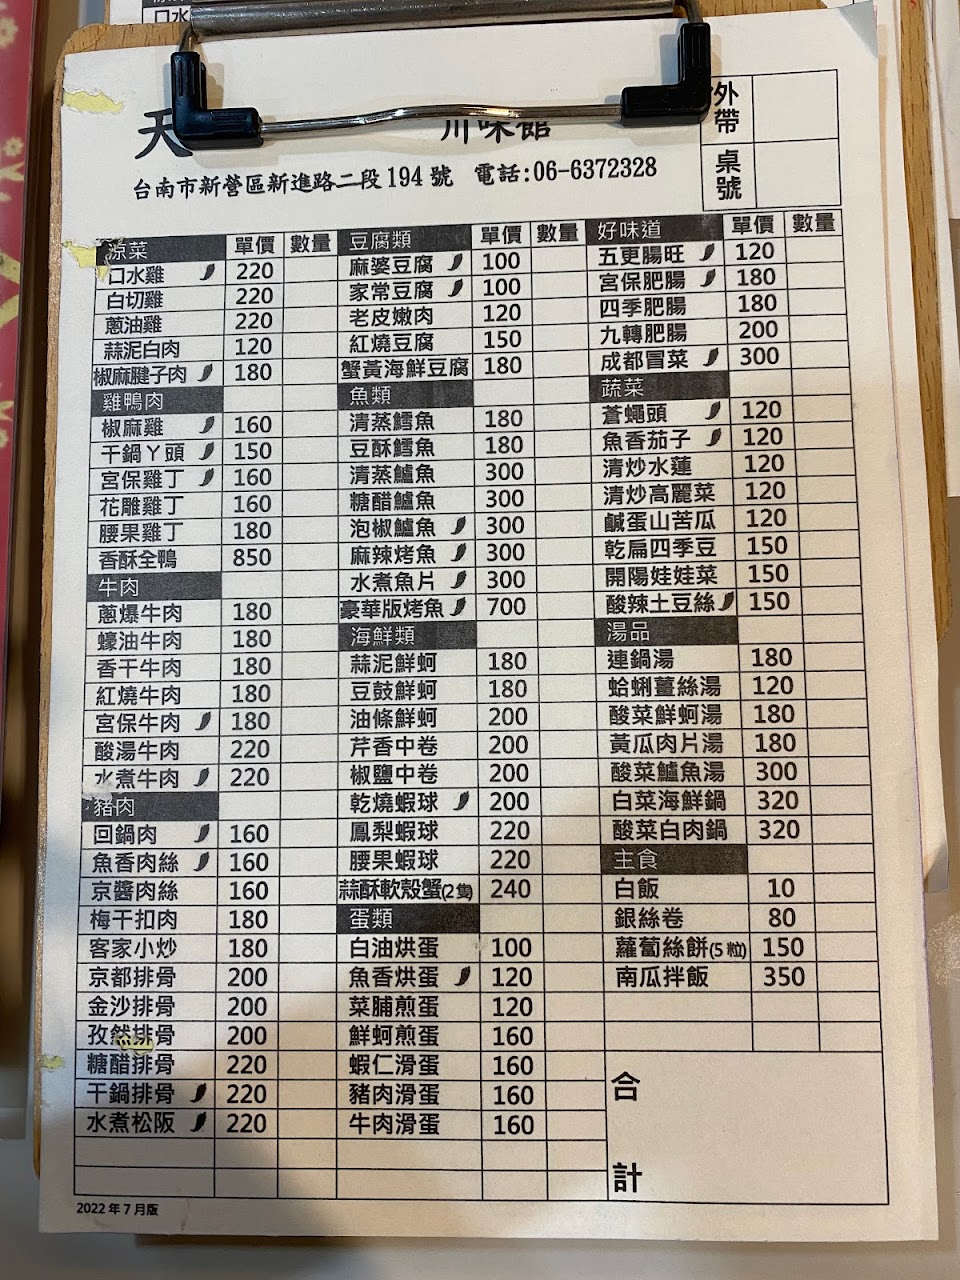 口水
天 川味館
外帶
桌號
台南市新營區新進路二段194號 電話:06-6372328
涼菜 單價 數量
口水雞 220
白切雞 220
蔥油雞 220
蒜泥白肉 120
椒麻腱子肉 180
雞鴨肉
椒麻雞 160
干鍋丫頭 150
宮保雞丁 160
花雕雞丁 160
腰果雞丁 180
香酥全鴨 850
牛肉
蔥爆牛肉 180
蠔油牛肉 180
香干牛肉 180
紅燒牛肉 180
宮保牛肉 180
酸湯牛肉 220
水煮牛肉 220
豬肉
回鍋肉 160
魚香肉絲 160
京醬肉絲 160
梅干扣肉 180
客家小炒 180
京都排骨 200
金沙排骨 200
孜然排骨 200
糖醋排骨 220
干鍋排骨 220
水煮松阪 220
豆腐類 單價 數量
麻婆豆腐 100
家常豆腐 100
老皮嫩肉 120
紅燒豆腐 150
蟹黃海鮮豆腐 180
魚類
清蒸鱈魚 180
豆酥鱈魚 180
清蒸鱸魚 300
糖醋鱸魚 300
泡椒鱸魚 300
麻辣烤魚 300
水煮魚片 300
豪華版烤魚 700
海鮮類
蒜泥鮮蚵 180
豆鼓鮮蚵 180
油條鮮蚵 200
芹香中卷 200
椒鹽中卷 200
乾燒蝦球 200
鳳梨蝦球 220
腰果蝦球 220
蒜酥軟殼蟹(2隻) 240
蛋類
白油烘蛋 100
魚香烘蛋 120
菜脯煎蛋 120
鮮蚵煎蛋 160
蝦仁滑蛋 160
豬肉滑蛋 160
牛肉滑蛋 160
好味道 單價 數量
五更腸旺 120
宮保肥腸 180
四季肥腸 180
九轉肥腸 200
成都冒菜 300
蔬菜
蒼蠅頭 120
魚香茄子 120
清炒水蓮 120
清炒高麗菜 120
鹹蛋山苦瓜 120
乾扁四季豆 150
開陽娃娃菜 150
酸辣土豆絲 150
湯品
連鍋湯 180
蛤蜊薑絲湯 120
酸菜鮮蚵湯 180
黃瓜肉片湯 180
酸菜鱸魚湯 300
白菜海鮮鍋 320
酸菜白肉鍋 320
主食
白飯 10
銀絲卷 80
蘿蔔絲餅(5粒) 150
南瓜拌飯 350
合計
2022年7月版